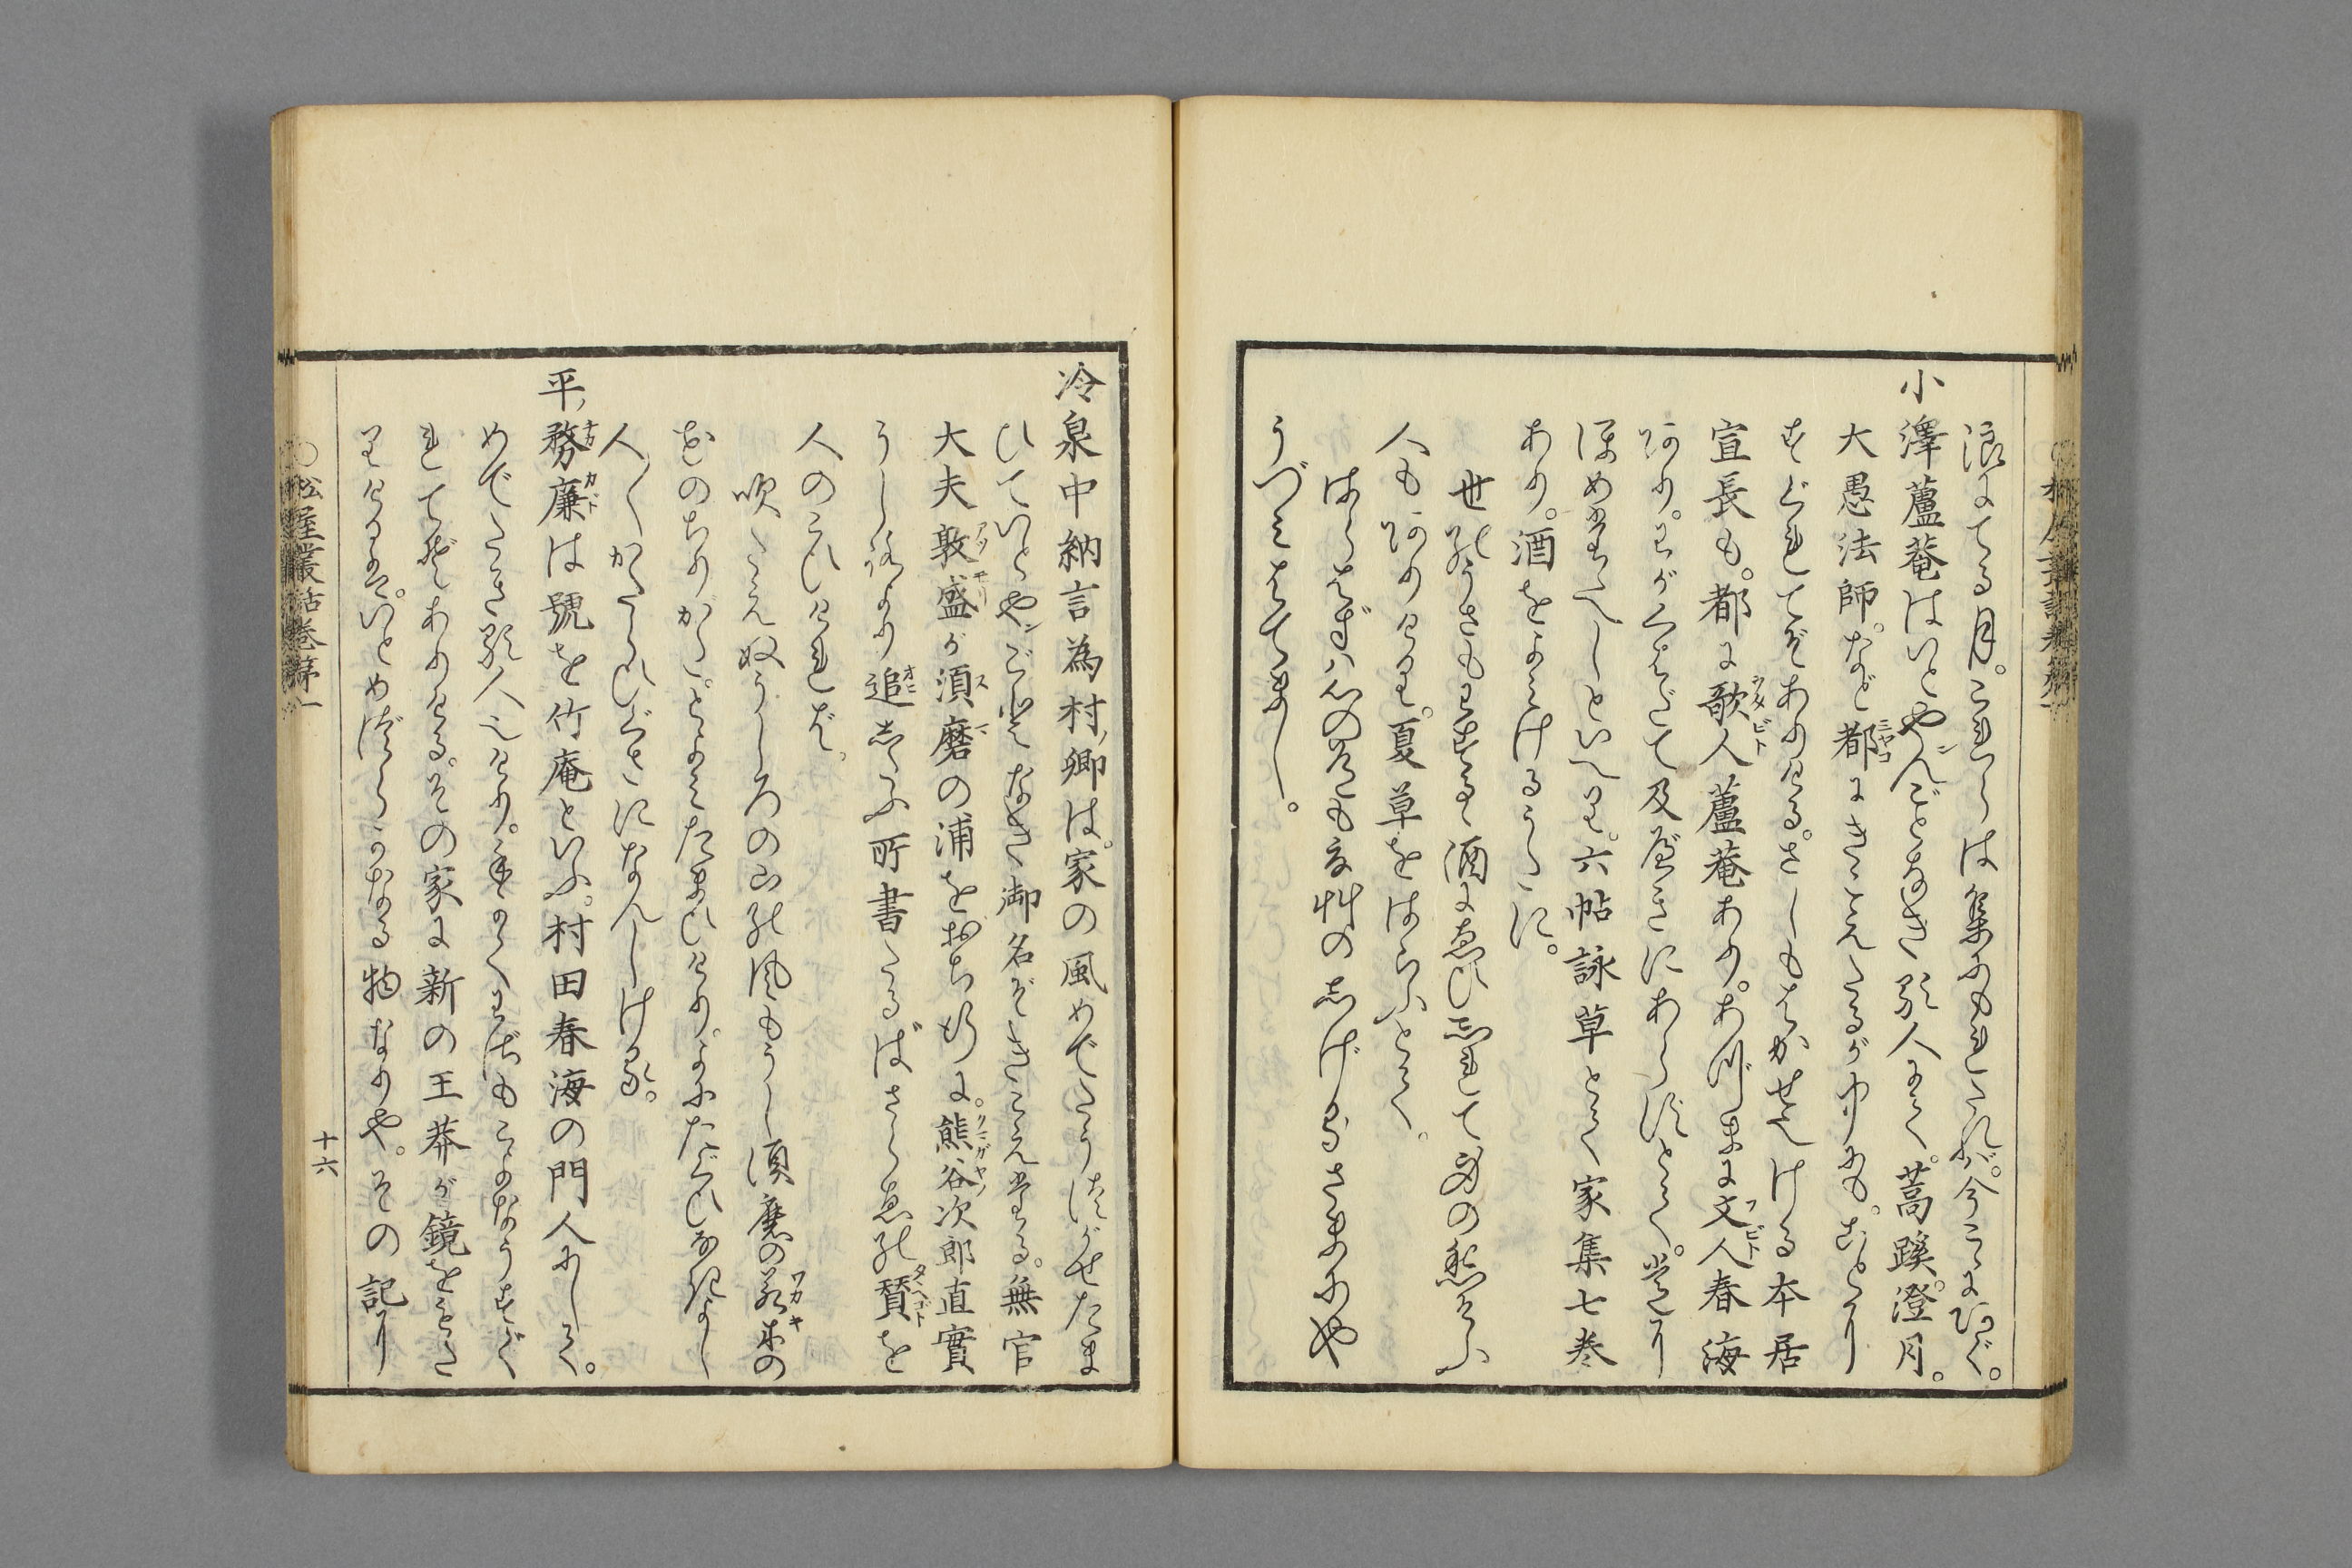 浪にてる月。これらは集にもれたれば。今こゝにあぐ。
小澤蘆菴はいとやんごとなき歌人にて。蒿蹊。澄月。
大愚法師。など都にきこえたるが中にも。ひとり
すぐれてぞありける。さしもをかせしける本居
宣長も。都に歌人蘆菴あり。あづまに文人春海
あり。わがくはだて及べきにあらずとて。
ほめたゝへしといへり。六帖詠草とて家集七巻
あり。酒をよみけるうたに。
世のうさもわするゝ酒にゑひしれて身の愁そふ
人もありけり。夏草をはらふとて。
はらはずは心の道も夏艸のしげきがさまにや
うづもれはてまし。
冷泉中納言為村卿は。家の風めでたうつがせたま
ひていとやごとなき御名ぞきこえたる。無官
大夫敦盛が須磨の浦をおち行に。熊谷次郎直實
うしろより追しふ所書たるばさら畫の賛を
人のこひければ。
吹たえぬうしろの山の風もうし須磨の若木の
花のちりがた。とよみたまひけり。よにたぐひなきよし
人〳〵かたらひぐさになんしける。
平務廉は號を竹庵といふ。村田春海の門人にして。
めでたき歌人也けり。手かくわざもこよなうすぐ
れてぞありける。その家に新の王莽が鏡をもた
りけるは。いとめづらかなる物なりや。その記り
○松屋叢話巻第一
十六